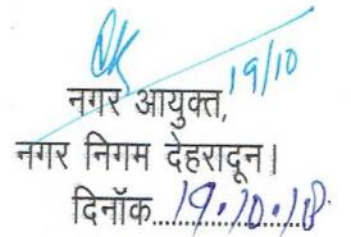 19/10
नगर आयुक्त,
नगर निगम देहरादून।
दिनॉक.....19.10.18